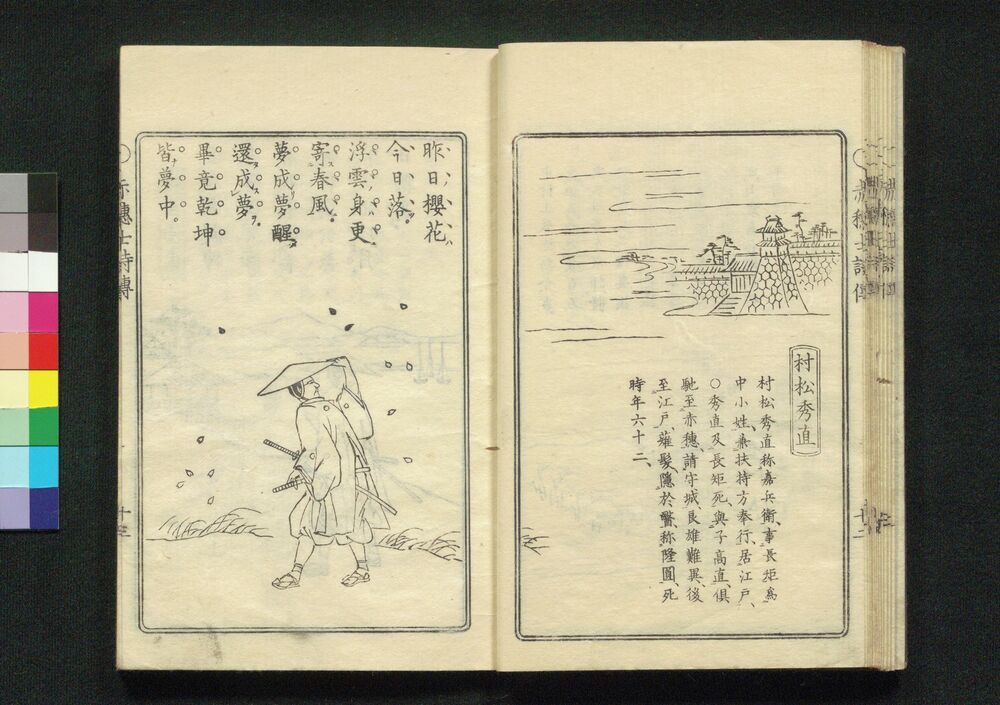 村松秀直
村松秀直称嘉兵衛、事長矩為
中小姓、兼扶持方奉行、居江戸、
○秀直及長矩死、與子高直、倶
馳至赤穗、請守城、良雄難異、後
至江戸、薙髮、隱於醫、称隆圓、死
時年六十二、
昨日櫻花
今日落。
浮雲身更
寄春風。
夢成夢醒
還成夢。
畢竟乾坤
皆夢中。
赤穗士詩傳
十三